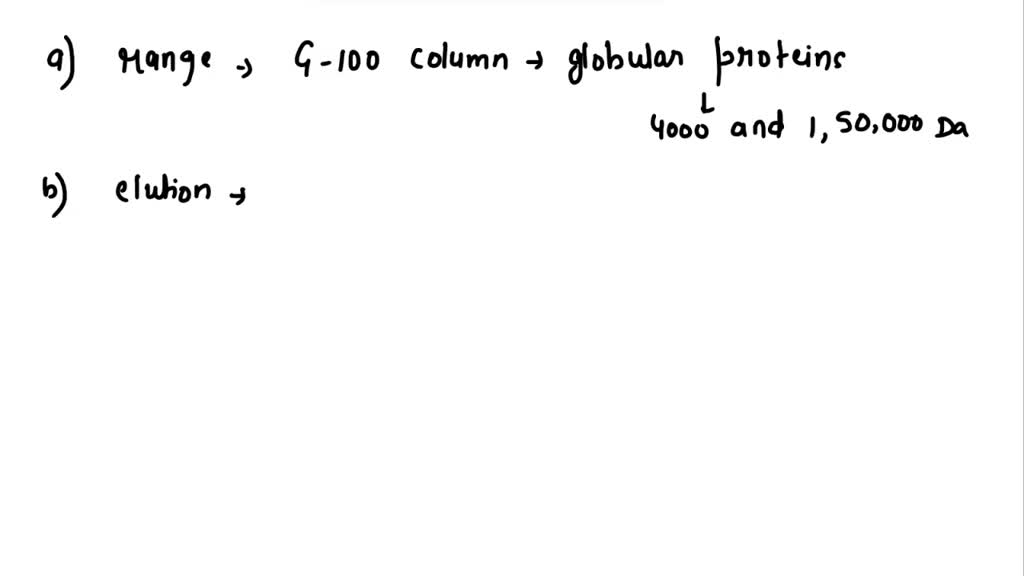 a) Range → G-100 column → globular proteins
↓
4000 and 1,50,000 Da
b) elution →